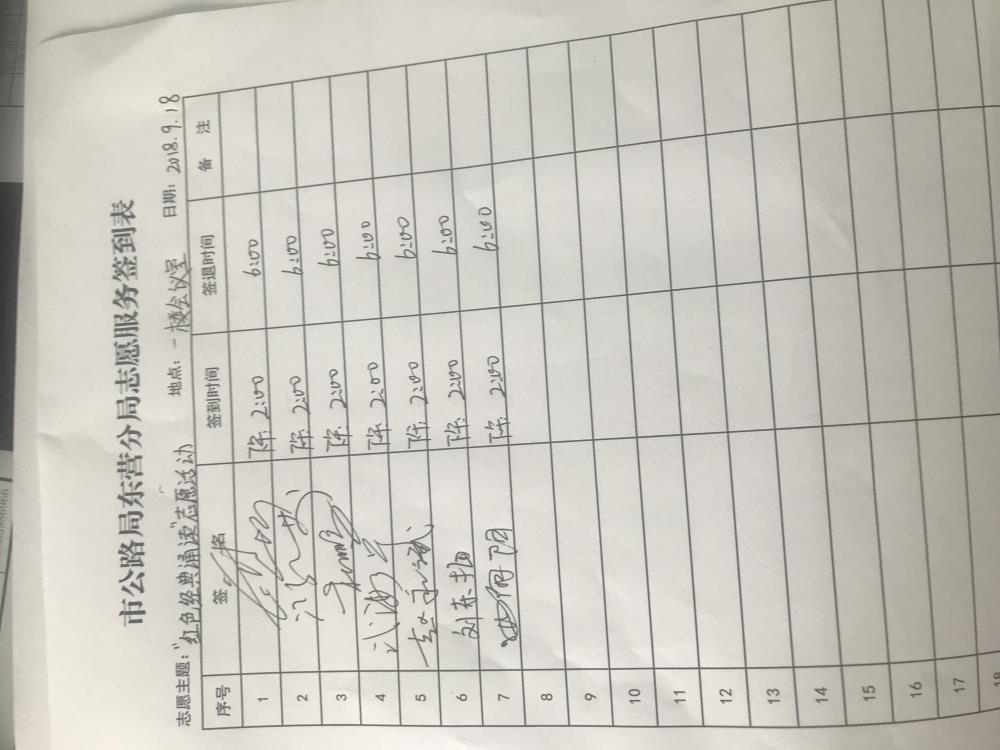 市公路局东营分局志愿服务签到表
志愿主题："红色经典诵读"志愿活动 地点：一楼会议室 日期：2018.9.18
序号 签 名 签到时间 签退时间 备 注
1 下午 2:00 6:00
2 下午 2:00 6:00
3 下午 2:00 6:00
4 下午 2:00 6:00
5 下午 2:00 6:00
6 刘东旭 下午 2:00 6:00
7 下午 2:00 6:00
8
9
10
11
12
13
14
15
16
17
18